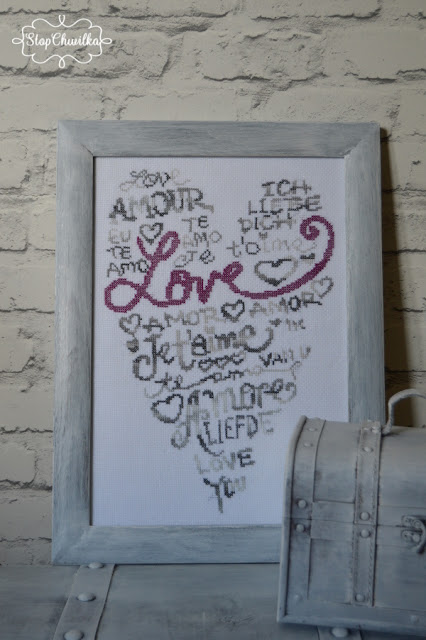 StopChwilka
Love
AMOUR
ICH
LIEBE
DICH
EU
TE
AMO
TE
AMO
Love
AMOR
AMOR
Je t'aime
te amo
AMORE
LIEFDE
LOVE
YOU